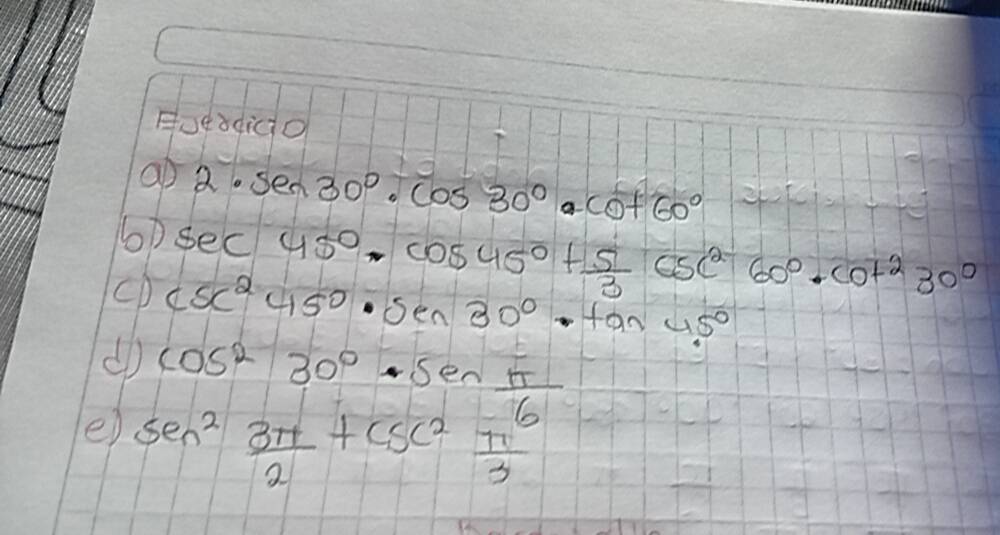 Ejercicio
a) 2 · sen 30° · cos 30° · cot 60°
b) sec 45° · cos 45° + 5/3 csc² 60° · cot² 30°
c) csc² 45° · sen 30° · tan 45°
d) cos² 30° · sen π/6
e) sen² 3π/2 + csc² π/3